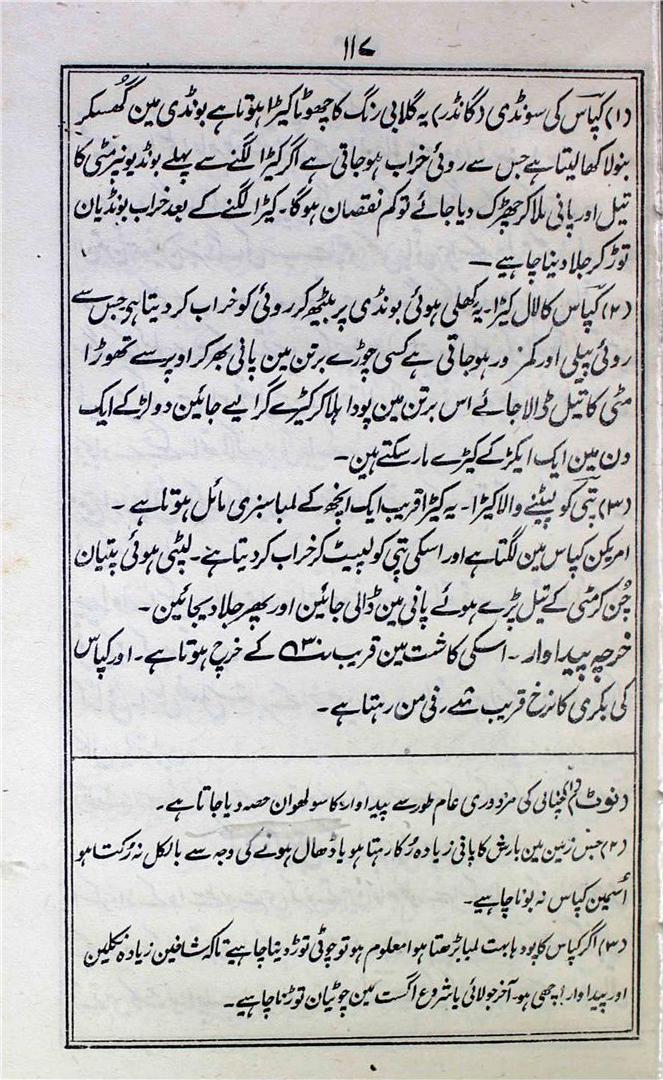 ۱۱۷
(۱) کپاس کی سونڈی (گانڈر) یہ گلابی رنگ کا چھوٹا کیڑا ہوتا ہے بونڈی مین گھُسکر
بنولا کھا لیتا ہے جس سے روئی خراب ہوجاتی ہے اگر کیڑا لگنے سے پہلے بونڈیونپر مٹی کا
تیل اور پانی ملا کر چھڑک دیا جائے تو کم نقصان ہوگا۔ کیڑا لگنے کے بعد خراب بونڈیان
توڑ کر جلا دینا چاہیے —
(۲) کپاس کا لال کیڑا۔ یہ کھلی ہوئی بونڈی پر بیٹھ کر روئی کو خراب کر دیتا ہی جس سے
روئی پیلی اور کمزور ہوجاتی ہے کسی چوڑے برتن مین پانی بھر کر اوپر سے تھوڑا
مٹی کا تیل ڈالا جائے اس برتن مین پودا ہلا کر کیڑے گرا لیے جائین دو لڑکے ایک
دن مین ایک ایکڑ کے کیڑے مار سکتے ہین۔
(۳) پتی کو لپیٹنے والا کیڑا۔ یہ کیڑا قریب ایک انچھ کے لمبا سبزی مائل ہوتا ہے ۔
امریکن کپاس مین لگتا ہے اور اسکی پتی کو لپیٹ کر خراب کر دیتا ہے۔ لپٹی ہوئی پتیان
چُن کر مٹی کے تیل پڑے ہوئے پانی مین ڈالی جائین اور پھر جلا دیجائین ۔
خرچہ پیداوار ۔ اسکی کاشت مین قریب کے خرچ ہوتا ہے۔ اور کپاس
کی بکری کا نرخ قریب فی من رہتا ہے۔
(نوٹ) (۱) چنائی کی مزدوری عام طور سے پیداوار کا سولھوان حصہ دیا جاتا ہے۔
(۲) جس زمین مین بارش کا پانی زیادہ رُکا رہتا ہو یا ڈھال ہونے کی وجہ سے بالکل نہ رُکتا ہو
اُسمین کپاس نہ بونا چاہیے۔
(۳) اگر کپاس کا پودا بہت لمبا بڑھتا ہوا معلوم ہو تو چوٹی توڑ دینا چاہیے تاکہ شاخین زیادہ نکلین
اور پیداوار اچھی ہو۔ آخر جولائی یا شروع اگست مین چوٹیان توڑنا چاہیے۔